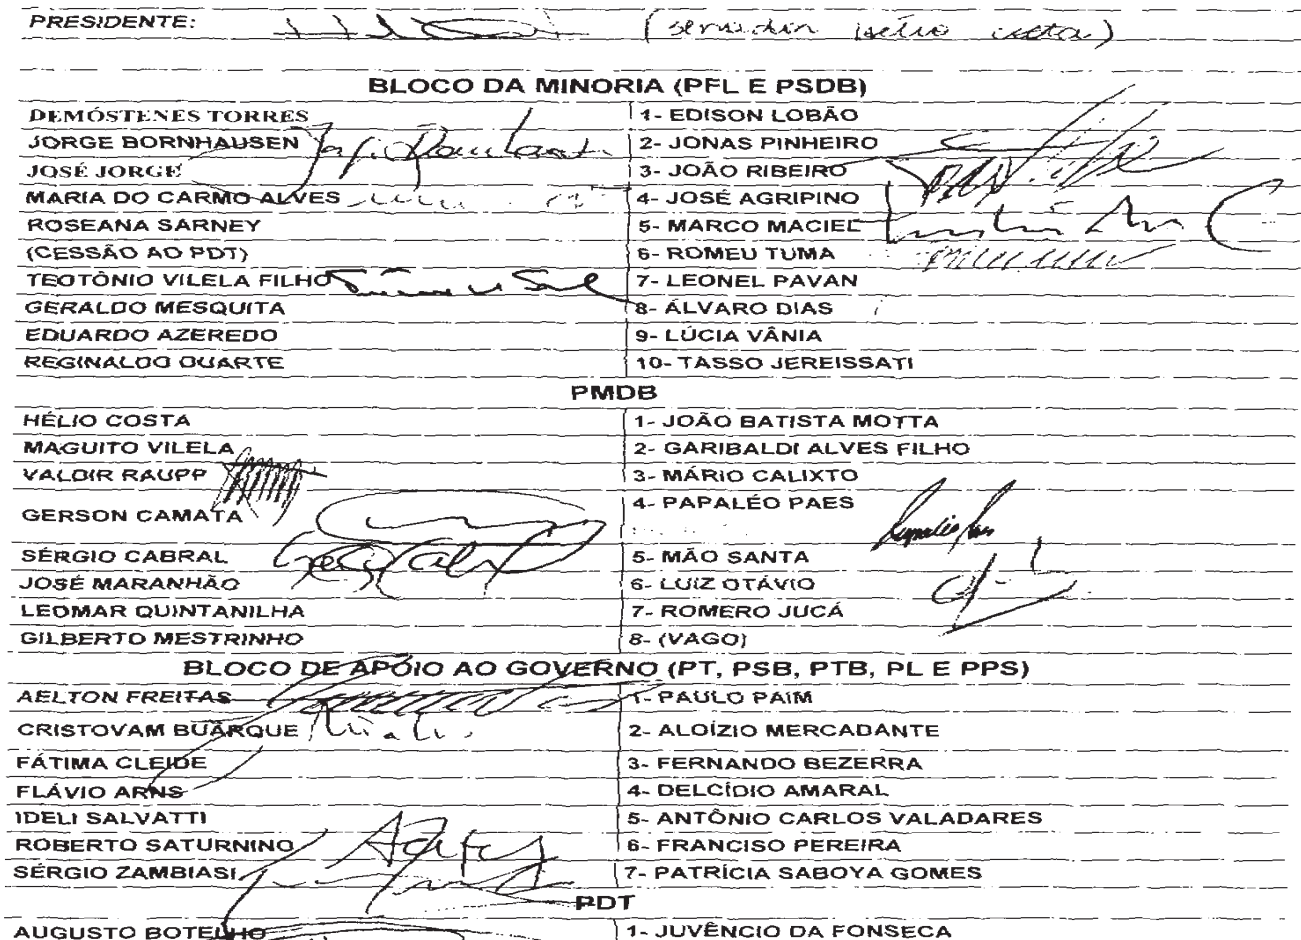 PRESIDENTE: (senador Hélio Costa)
BLOCO DA MINORIA (PFL E PSDB)
DEMÓSTENES TORRES 1- EDISON LOBÃO
JORGE BORNHAUSEN 2- JONAS PINHEIRO
JOSÉ JORGE 3- JOÃO RIBEIRO
MARIA DO CARMO ALVES 4- JOSÉ AGRIPINO
ROSEANA SARNEY 5- MARCO MACIEL
(CESSÃO AO PDT) 6- ROMEU TUMA
TEOTÔNIO VILELA FILHO 7- LEONEL PAVAN
GERALDO MESQUITA 8- ÁLVARO DIAS
EDUARDO AZEREDO 9- LÚCIA VÂNIA
REGINALDO DUARTE 10- TASSO JEREISSATI
PMDB
HÉLIO COSTA 1- JOÃO BATISTA MOTTA
MAGUITO VILELA 2- GARIBALDI ALVES FILHO
VALDIR RAUPP 3- MÁRIO CALIXTO
GERSON CAMATA 4- PAPALÉO PAES
SÉRGIO CABRAL 5- MÃO SANTA
JOSÉ MARANHÃO 6- LUIZ OTÁVIO
LEOMAR QUINTANILHA 7- ROMERO JUCÁ
GILBERTO MESTRINHO 8- (VAGO)
BLOCO DE APOIO AO GOVERNO (PT, PSB, PTB, PL E PPS)
AELTON FREITAS 1- PAULO PAIM
CRISTOVAM BUARQUE 2- ALOÍZIO MERCADANTE
FÁTIMA CLEIDE 3- FERNANDO BEZERRA
FLÁVIO ARNS 4- DELCÍDIO AMARAL
IDELI SALVATTI 5- ANTÔNIO CARLOS VALADARES
ROBERTO SATURNINO 6- FRANCISO PEREIRA
SÉRGIO ZAMBIASI 7- PATRÍCIA SABOYA GOMES
PDT
AUGUSTO BOTELHO 1- JUVÊNCIO DA FONSECA